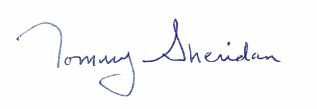 Tommy Sheridan